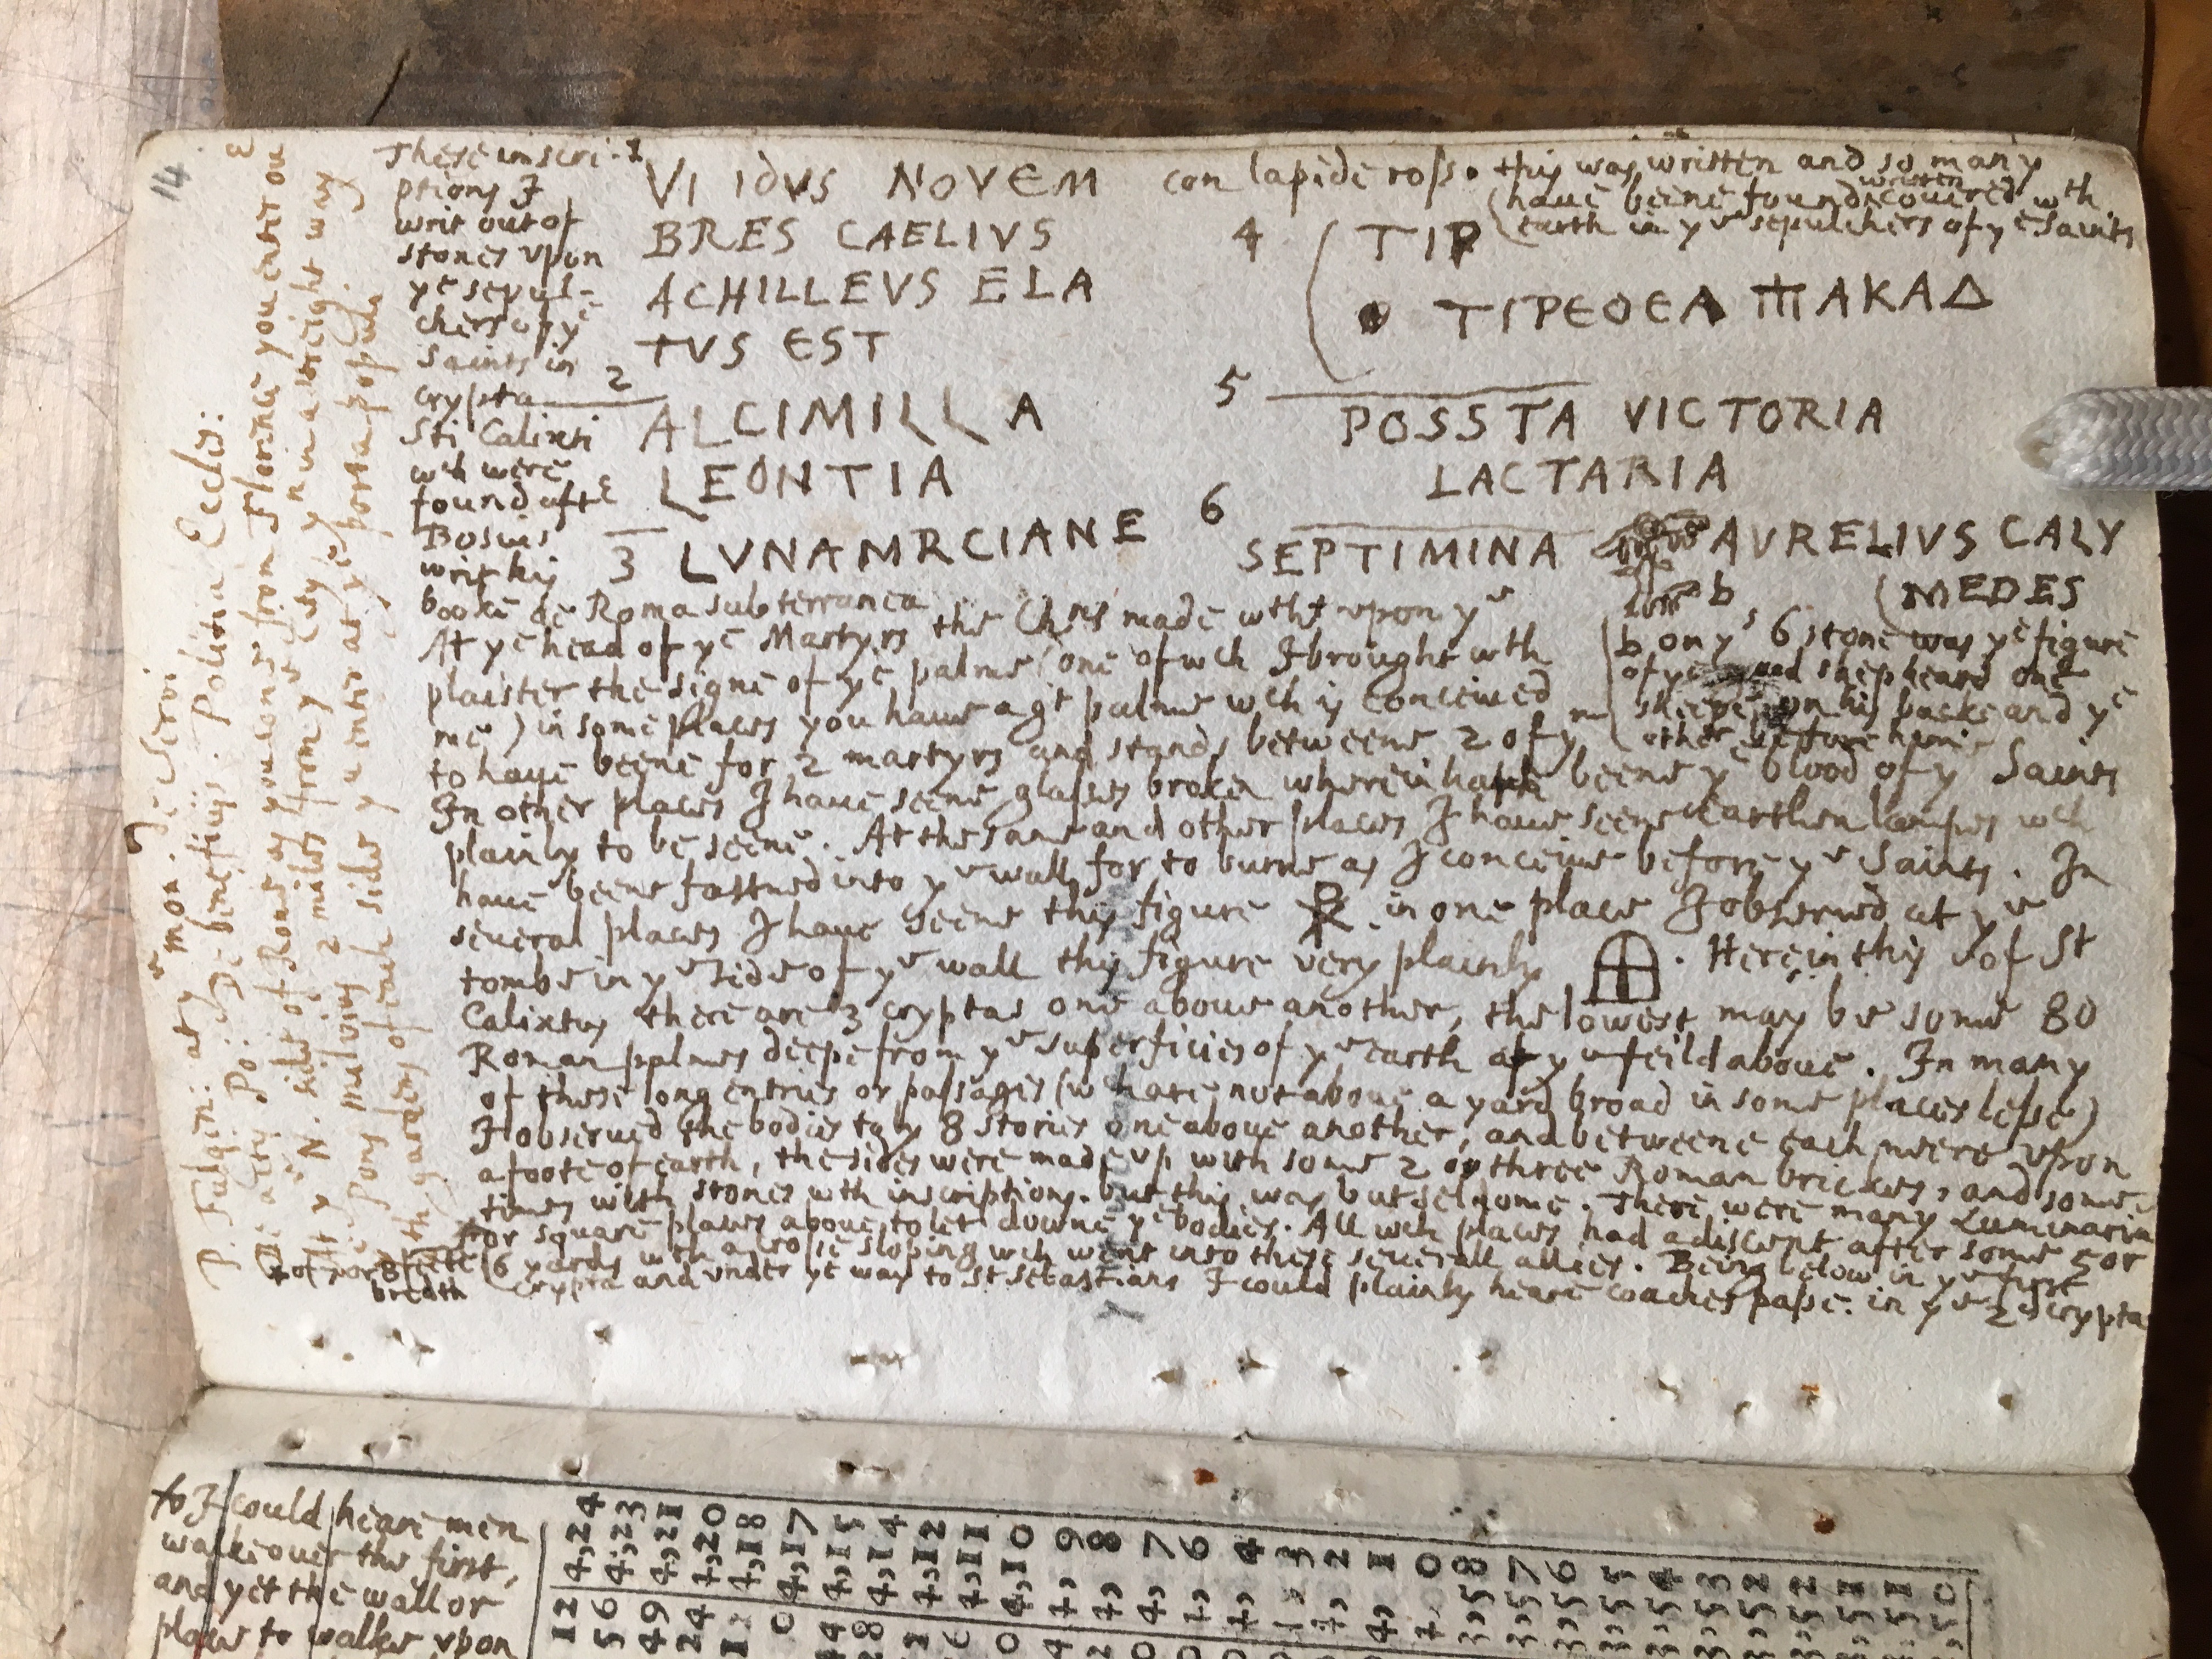 14
These inscri-
ptions I
writ out of
stones vpon
ye sepul-
chers of ye
Saints in
crypta
Sti Calixti
wch were
found afte
Bosius
writ his
booke de Roma subterranea
1 VI IdVS NOVEM
BRES CAELIVS
ACHILLEVS ELA
TVS EST
2 ALCIMILLA
LEONTIA
3 LVNAMRCIANE
con lapide rosso this was written and so many
haue beene found couered wth
written
earth in ye sepulchers of ye Saints
4 TIP
TIPEOEA ΑΚΑΔ
5 POSSTA VICTORIA
LACTARIA
6 SEPTIMINA AVRELIVS CALY
b MEDES
b on ys 6 stone was ye figure
of ye good shepheard one
sheepe on his backe and ye
other before
At ye head of ye Martyrs the made wtht vpon ye
plaister the signe of ye palme (one of wch I brought wth
me) in some places you haue a palme wch is conceiued
to haue beene for 2 martyrs and stands betweene 2 of ym
In other places I haue seene glasses broken wherein hath beene ye blood of ye Saints
plainly to be seene. At the same and other places I haue seene earthen lampes wch
haue beene fastned into ye wall for to burne as I conceiue before ye Saints. In
several places I haue seene this figure in one place I obserued at ye
tombe in ye side of ye wall this figure very plainly . Here in this of St
Calixtus there are 3 cryptas one aboue another, the lowest may be some 80
Roman palmes deepe from ye superficies of ye earth or ye feild aboue. In many
of these long entries or passages (wch are not aboue a yard broad in some places lesse)
I obserued the bodies to ly 8 stories one aboue another, and betweene each neere vpon
a foote of earth, the sides were made vp with some 2 or three Roman brickes, and some
times with stones wth inscriptions. but this was but seldome. There were many Luminaria
or square places aboue to let downe ye bodies. All wch places had a discent after some 5 or
6 yards with a crosse sloping wch went into these seuerall allies. Being below in ye first
crypta and vnder ye way to St Sebastians I could plainly heare coaches passe. in ye 2d crypta
of 7 or 8 feete
bredth
P. Fulgen: at ye mon. de Serui
De beneficijs. Politia Eccles:
At ye N. side of Rome as you come from Florence you enter ou
Pons miluius 2 miles from ye city yn in a streight way
wth gardens of each side yu enter at ye porta populi
to I could heare men
walke ouer the first,
and yet the wall or
place to walke vpon
4,24
4,23
4,21
4,20
4,18
4,17
4,15
4,14
4,12
4,11
4,10
4,9
4,8
4,7
4,6
4,4